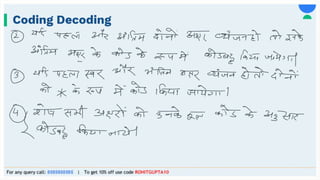 Coding Decoding
② यदि पहला और अंतिम दोनों अक्षर व्यंजन हो तो उसके
अंतिम अक्षर के कोड के रूप में कोडबद्ध किया जायेगा।
③ यदि पहला स्वर और अंतिम अक्षर व्यंजन हो तो दोनों
को * के रूप में कोड किया जायेगा।
④ शेष सभी अक्षरों को उनके मूल कोड के अनुसार
कोडबद्ध किया जाये।
For any query call: | To get 10% off use code ROHITGUPTA10